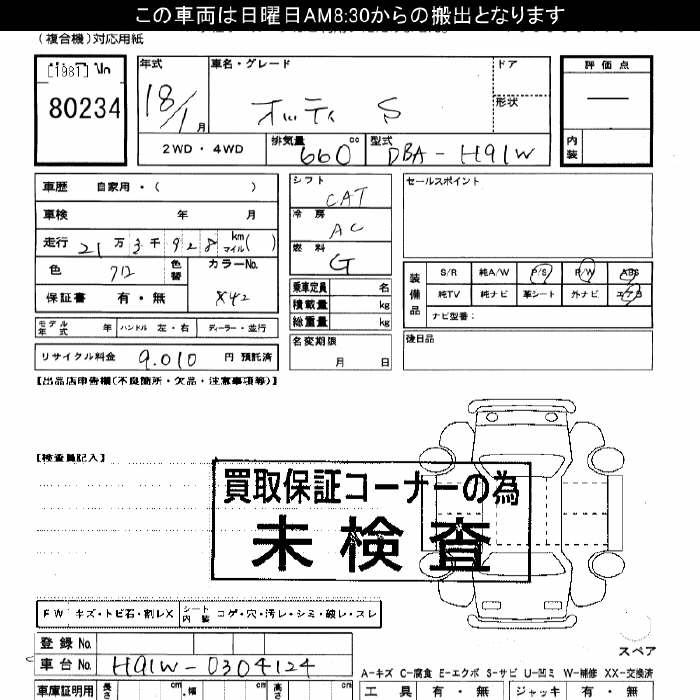 この車両は日曜日AM8:30からの搬出となります
(複合機)対応用紙
[1981]
80234
年式 18/1月
車名・グレード オッティ S
ドア
形状
評価点 —
内装
2WD・4WD
排気量 660 cc
型式 DBA-H91W
車歴 自家用・( )
車検 年 月
走行 21万3千928 km マイル( )
色 アロ
色替
カラーNo. X42
保証書 有・無
シフト CAT
冷房 AC
燃料 G
セールスポイント
乗車定員 名
積載量 kg
総重量 kg
装備品 S/R 純A/W P/S P/W ABS
純TV 純ナビ 革シート 外ナビ エアB
ナビ型番:
モデル年式 年 ハンドル 左・右 ディーラー・並行
リサイクル料金 9,010 円 預託済
名変期限 月 日
後日品
【出品店申告欄(不良箇所・欠品・注意事項等)】
【検査員記入】
買取保証コーナーの為
未検査
FW キズ・トビ石・割レX シート内装 コゲ・穴・汚レ・シミ・破レ・スレ
登録No.
車台No. H91W-0304124
スペア
A-キズ C-腐食 E-エクボ S-サビ U-凹ミ W-補修 XX-交換済
車庫証明用 長さ cm 幅 cm 高さ cm
工具 有・無 ジャッキ 有・無